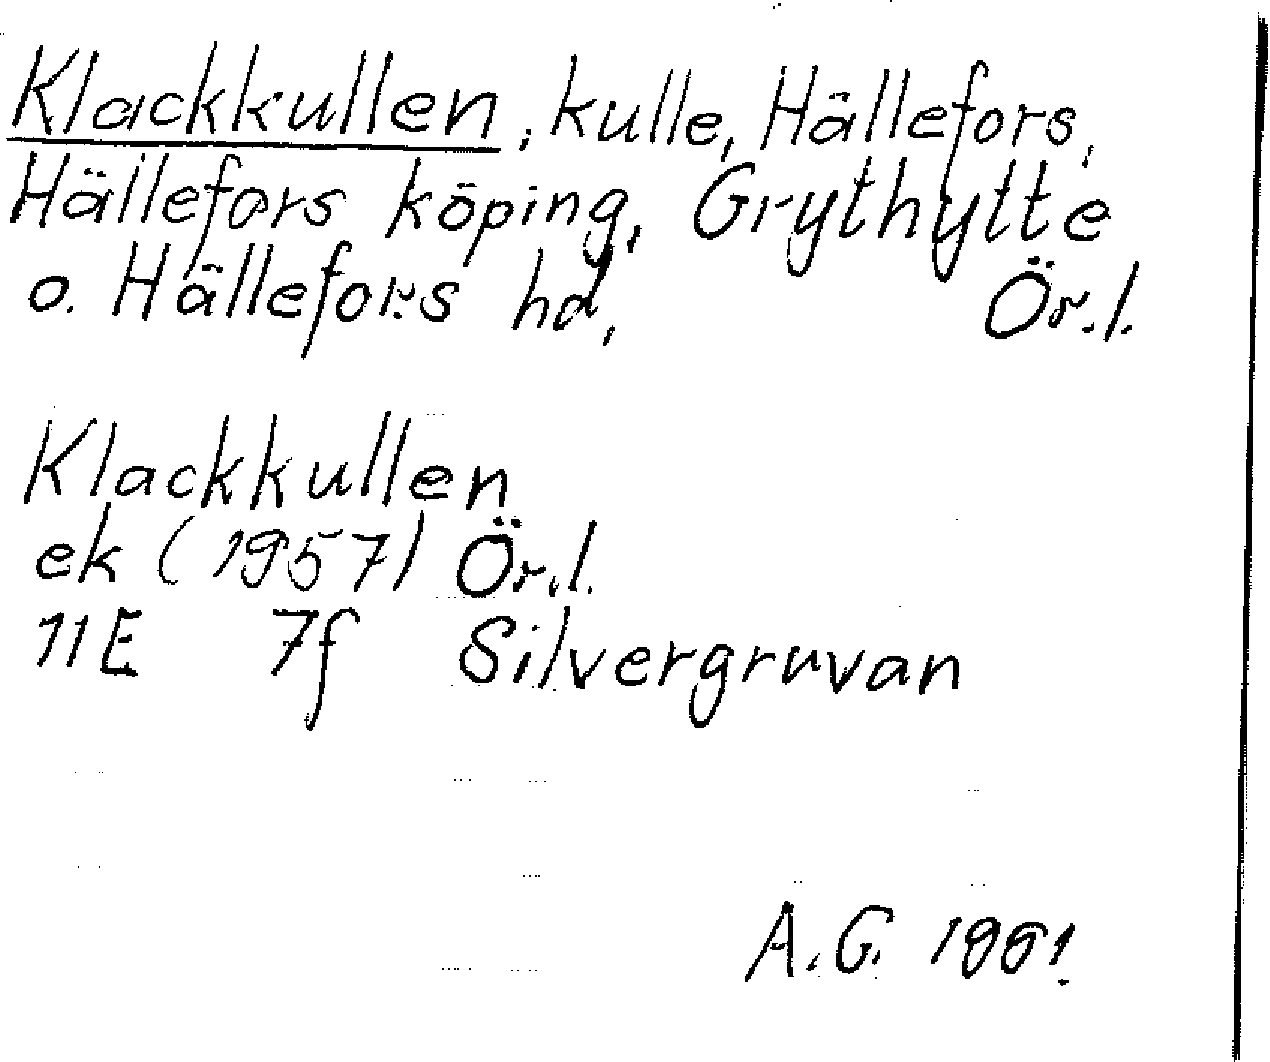 Klackkullen, kulle, Hällefors,
Hällefors köping, Grythytte
o. Hällefors hd, Ör.l.
Klackkullen
ek (1957) Ör.l.
11E 7f Silvergruvan
A.G. 1961.